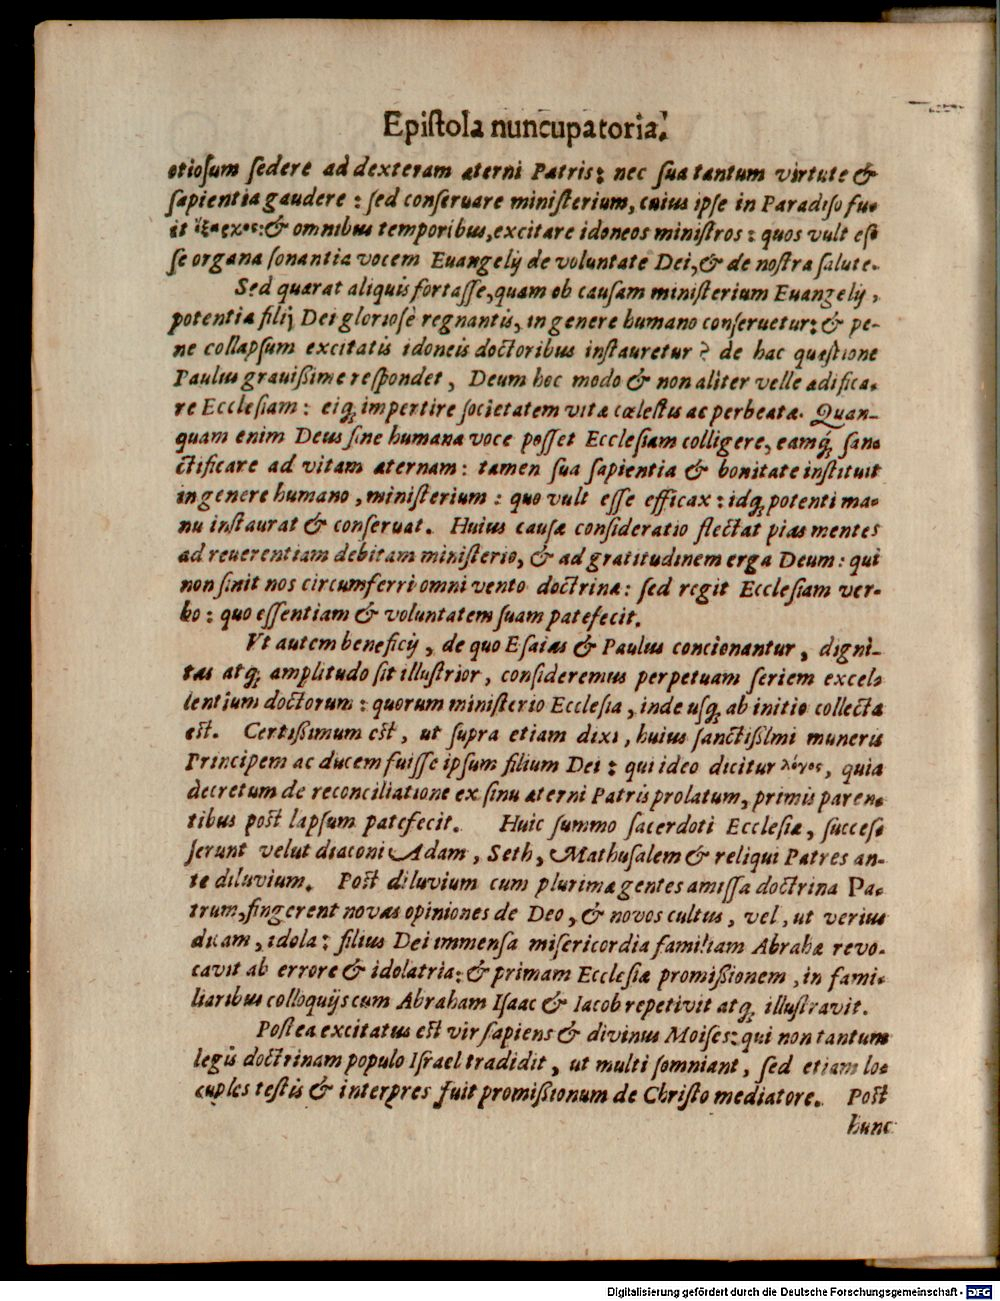 Epistola nuncupatoria.
otiosum sedere ad dexteram æterni Patris: nec sua tantum virtute &
sapientia gaudere: sed conseruare ministerium, cuius ipse in Paradiso fu-
it ἔξαρχος: & omnibus temporibus, excitare idoneos ministros: quos vult es-
se organa sonantia vocem Euangelij de voluntate Dei, & de nostra salute.
Sed quærat aliquis fortasse, quam ob causam ministerium Euangelij,
potentia filij Dei gloriosè regnantis, in genere humano conseruetur: & pe-
ne collapsum excitatis idoneis doctoribus instauretur? de hac quæstione
Paulus grauißime respondet, Deum hoc modo & non aliter velle ædifica-
re Ecclesiam: eiq; impertire societatem vitæ cœlestis ac perbeatæ. Quan-
quam enim Deus sine humana voce posset Ecclesiam colligere, eamq́; san-
ctificare ad vitam æternam: tamen sua sapientia & bonitate instituit
in genere humano, ministerium: quo vult esse efficax: idq; potenti ma-
nu instaurat & conseruat. Huius causæ consideratio flectat pias mentes
ad reuerentiam debitam ministerio, & ad gratitudinem erga Deum: qui
non sinit nos circumferri omni vento doctrinæ: sed regit Ecclesiam ver-
bo: quo essentiam & voluntatem suam patefecit.
Vt autem beneficij, de quo Esaias & Paulus concionantur, digni-
tas atq; amplitudo sit illustrior, consideremus perpetuam seriem excel-
lentium doctorum: quorum ministerio Ecclesia, inde usq; ab initio collecta
est. Certißimum est, ut supra etiam dixi, huius sanctißimi muneris
Principem ac ducem fuisse ipsum filium Dei: qui ideo dicitur λόγος, quia
decretum de reconciliatione ex sinu æterni Patris prolatum, primis paren-
tibus post lapsum patefecit. Huic summo sacerdoti Ecclesiæ, succes-
serunt velut diaconi Adam, Seth, Mathusalem & reliqui Patres an-
te diluvium. Post diluvium cum plurimæ gentes amissa doctrina Pa-
trum, fingerent novas opiniones de Deo, & novos cultus, vel, ut verius
dicam, idola: filius Dei immensa misericordia familiam Abrahæ revo-
cavit ab errore & idolatria: & primam Ecclesiæ promißionem, in fami-
liaribus colloquijs cum Abraham Isaac & Iacob repetivit atq; illustravit.
Postea excitatus est vir sapiens & divinus Moises: qui non tantum
legis doctrinam populo Israel tradidit, ut multi somniant, sed etiam lo-
cuples testis & interpres fuit promißionum de Christo mediatore. Post
hunc
Digitalisierung gefördert durch die Deutsche Forschungsgemeinschaft - DFG